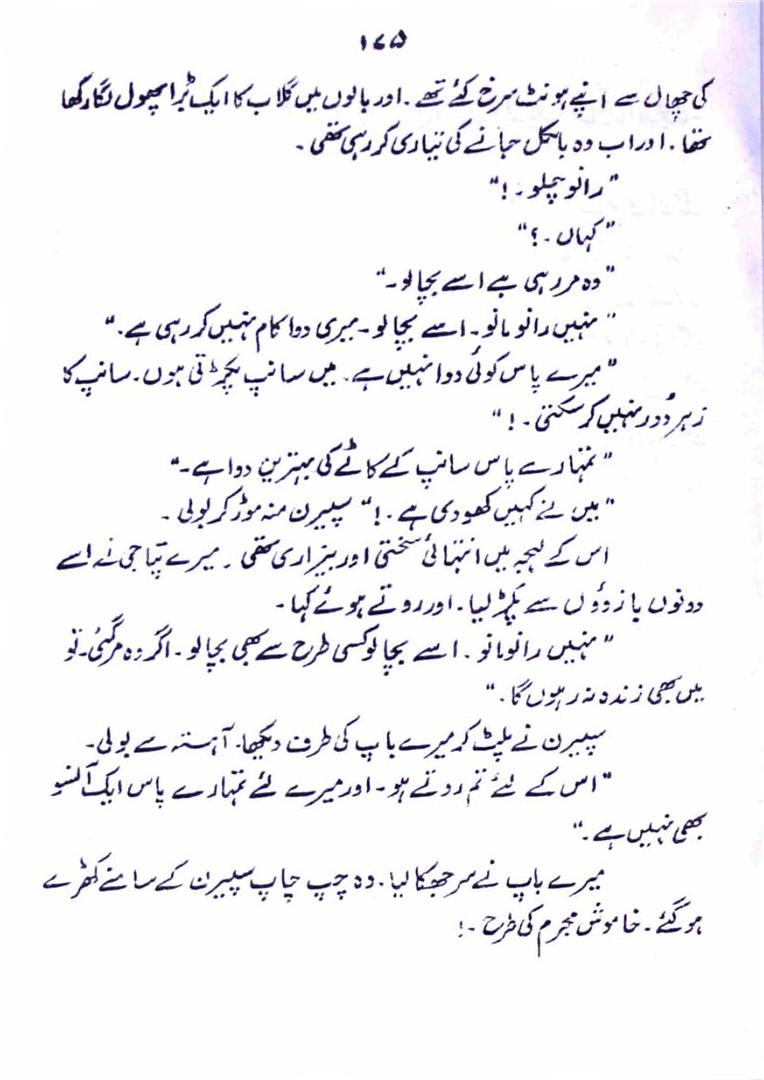 ۱۷۵
کی چھال سے اپنے ہونٹ سرخ کئے تھے ۔ اور بالوں میں گلاب کا ایک بڑا پھول لگا رکھا
تھا ۔ اور اب وہ بالکل جانے کی تیاری کر رہی تھی ۔
"رانو چلو ۔!"
"کہاں ۔؟"
"وہ مر رہی ہے اسے بچا لو ۔"
"نہیں رانو مانو ۔ اسے بچا لو ۔ میری دوا کام نہیں کر رہی ہے ۔"
"میرے پاس کوئی دوا نہیں ہے ۔ میں سانپ پکڑتی ہوں ۔ سانپ کا
زہر دُور نہیں کر سکتی ۔!"
"تمہارے پاس سانپ کے کاٹے کی بہترین دوا ہے ۔"
"میں نے کہیں کھو دی ہے ۔!" سپیرن منہ موڑ کر بولی ۔
اس کے لہجہ میں انتہائی سختی اور بیزاری تھی ۔ میرے پتا جی نے اسے
دونوں بازوؤں سے پکڑ لیا ۔ اور روتے ہوئے کہا ۔
"نہیں رانو مانو ۔ اسے بچا لو کسی طرح سے بھی بچا لو ۔ اگر وہ مر گئی ۔ تو
میں بھی زندہ نہ رہوں گا ۔"
سپیرن نے پلٹ کر میرے باپ کی طرف دیکھا ۔ آہستہ سے بولی ۔
"اس کے لئے تم روتے ہو ۔ اور میرے لئے تمہارے پاس ایک آنسو
بھی نہیں ہے ۔"
میرے باپ نے سر جھکا لیا ۔ وہ چپ چاپ سپیرن کے سامنے کھڑے
ہو گئے ۔ خاموش مجرم کی طرح ۔!